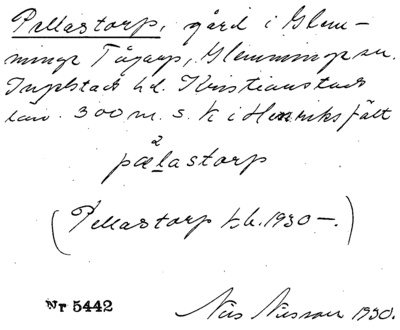 Pellastorp, gård i Glem-
minge Tågarp, Glemminge sn.
Ingelstads hd. Kristianstads
län. 300 m. s. k i Henriksfält
2
pælastorp
(Pellastorp t.h. 1930 –.)
Nr 5442 Nils Nilsson 1930.